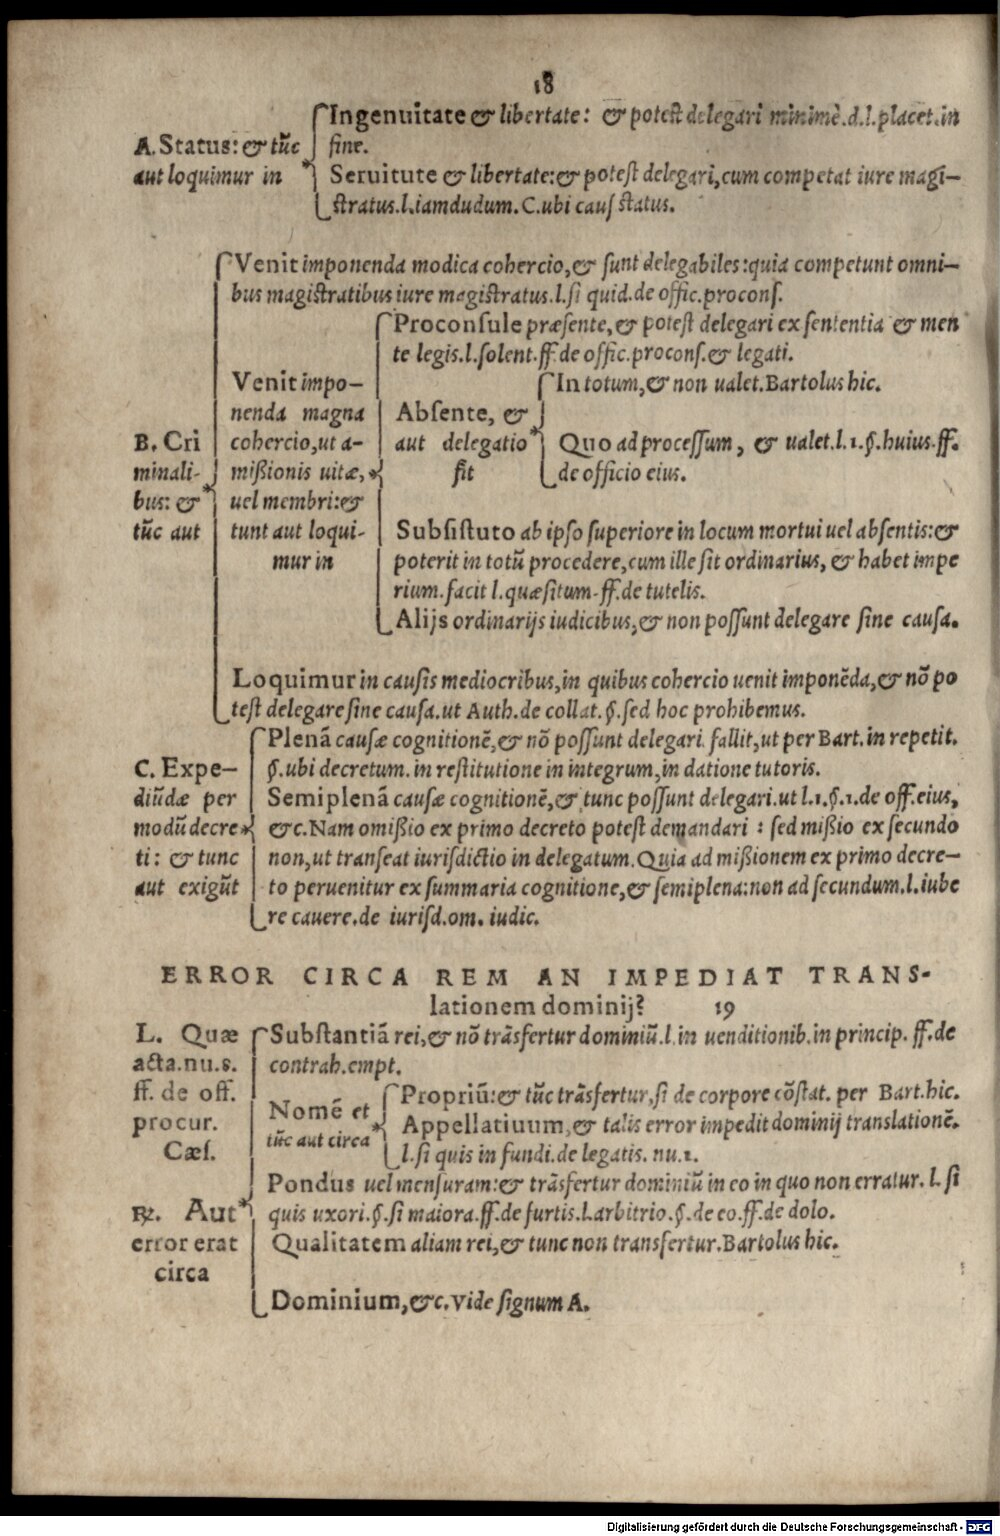 18
Ingenuitate & libertate: & potest delegari minimè.d.l.placet.in
fine.
A. Status: & tũc
aut loquimur in
Seruitute & libertate:& potest delegari,cum competat iure magi-
stratus.l.iamdudum.C.ubi caus status.
Venit imponenda modica cohercio,& sunt delegabiles:quia competunt omni-
bus magistratibus iure magistratus.l.si quid.de offic.procons.
Proconsule præsente,& potest delegari ex sententia & men
te legis.l.solent.ff.de offic.procons.& legati.
B. Cri
minali-
bus: &
tũc aut
Venit impo-
nenda magna
cohercio,ut a-
mißionis uitæ,
uel membri:&
tunt aut loqui-
mur in
Absente, &
aut delegatio
fit
In totum,& non ualet.Bartolus hic.
Quo ad processum, & ualet.l.1.§.huius.ff.
de officio eius.
Subsistuto ab ipso superiore in locum mortui uel absentis:&
poterit in totũ procedere,cum ille sit ordinarius, & habet impe
rium.facit l.quæsitum.ff.de tutelis.
Alijs ordinarijs iudicibus,& non possunt delegare sine causa.
Loquimur in causis mediocribus,in quibus cohercio uenit imponẽda,& nõ po
test delegare sine causa.ut Auth.de collat.§.sed hoc prohibemus.
C. Expe-
diũdæ per
modũ decre
ti: & tunc
aut exigũt
Plenã causæ cognitionẽ,& nõ possunt delegari.fallit,ut per Bart.in repetit.
§.ubi decretum.in restitutione in integrum,in datione tutoris.
Semiplenã causæ cognitionẽ,& tunc possunt delegari.ut l.1.§.1.de off.eius,
&c.Nam omißio ex primo decreto potest demandari : sed mißio ex secundo
non,ut transeat iurisdictio in delegatum.Quia ad mißionem ex primo decre-
to peruenitur ex summaria cognitione,& semiplena:non ad secundum.l.iube
re cauere.de iurisd.om. iudic.
ERROR CIRCA REM AN IMPEDIAT TRANS-
lationem dominij? 19
L. Quæ
acta.nu.s.
ff. de off.
procur.
Cæs.
Substantiã rei,& nõ trãsfertur dominiũ.l.in uenditionib.in princip. ff.de
contrah.empt.
Nomẽ et
tũc aut circa
Propriũ:& tũc trãsfertur,si de corpore cõstat. per Bart.hic.
Appellatiuum,& talis error impedit dominij translationẽ.
l.si quis in fundi.de legatis. nu.1.
℞. Aut
error erat
circa
Pondus uel mensuram:& trãsfertur dominiũ in eo in quo non erratur. l. si
quis uxori.§.si maiora.ff.de furtis.l.arbitrio.§.de eo.ff.de dolo.
Qualitatem aliam rei,& tunc non transfertur.Bartolus hic.
Dominium,&c.Vide signum A.
Digitalisierung gefördert durch die Deutsche Forschungsgemeinschaft - DFG